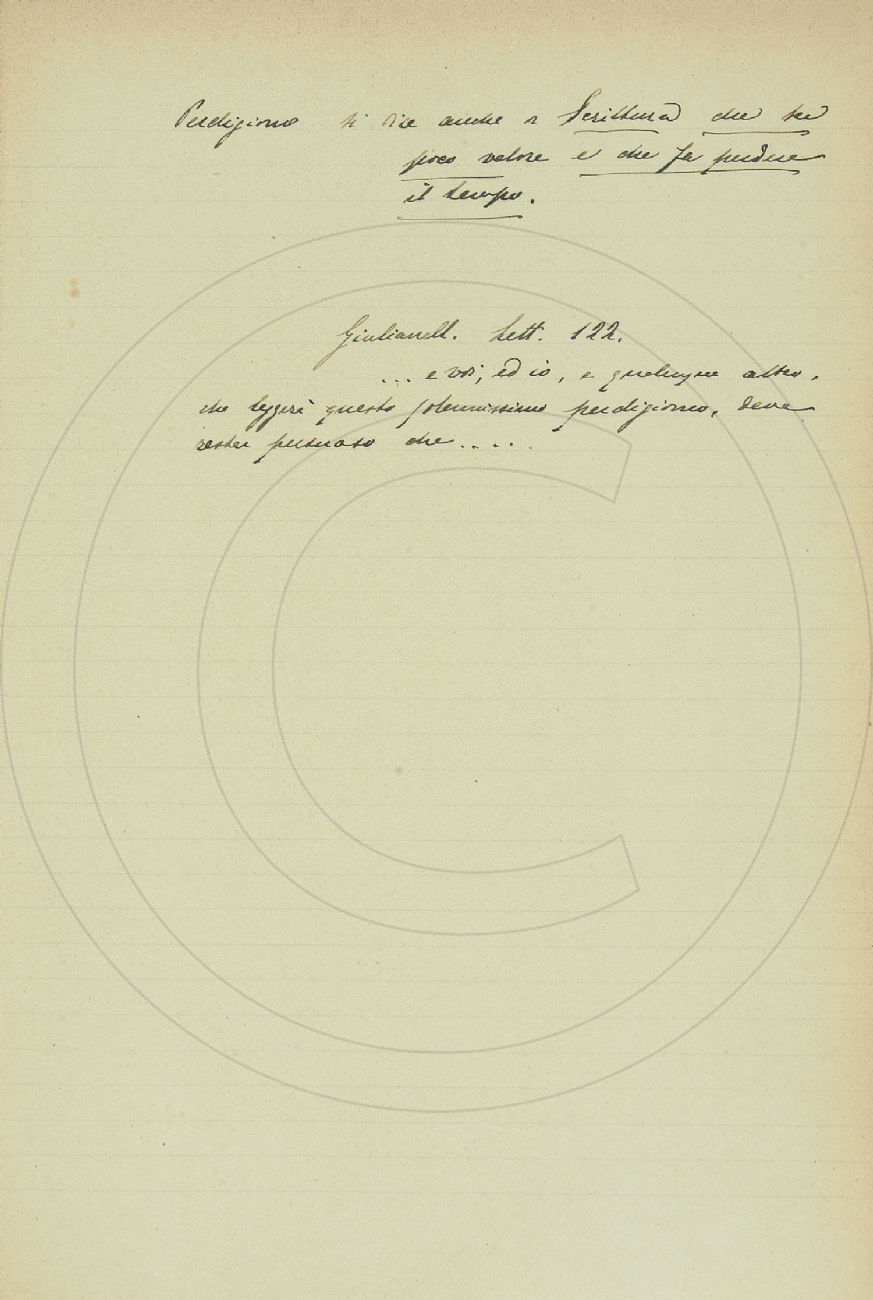 Perdigiorno si dice anche a Scrittura che ha
poco valore e che fa perdere
il tempo.
Giulianell. Lett. 122.
... e voi, ed io, e qualunque altro,
che leggerà questo solennissimo perdigiorno, deve
restar persuaso che.....